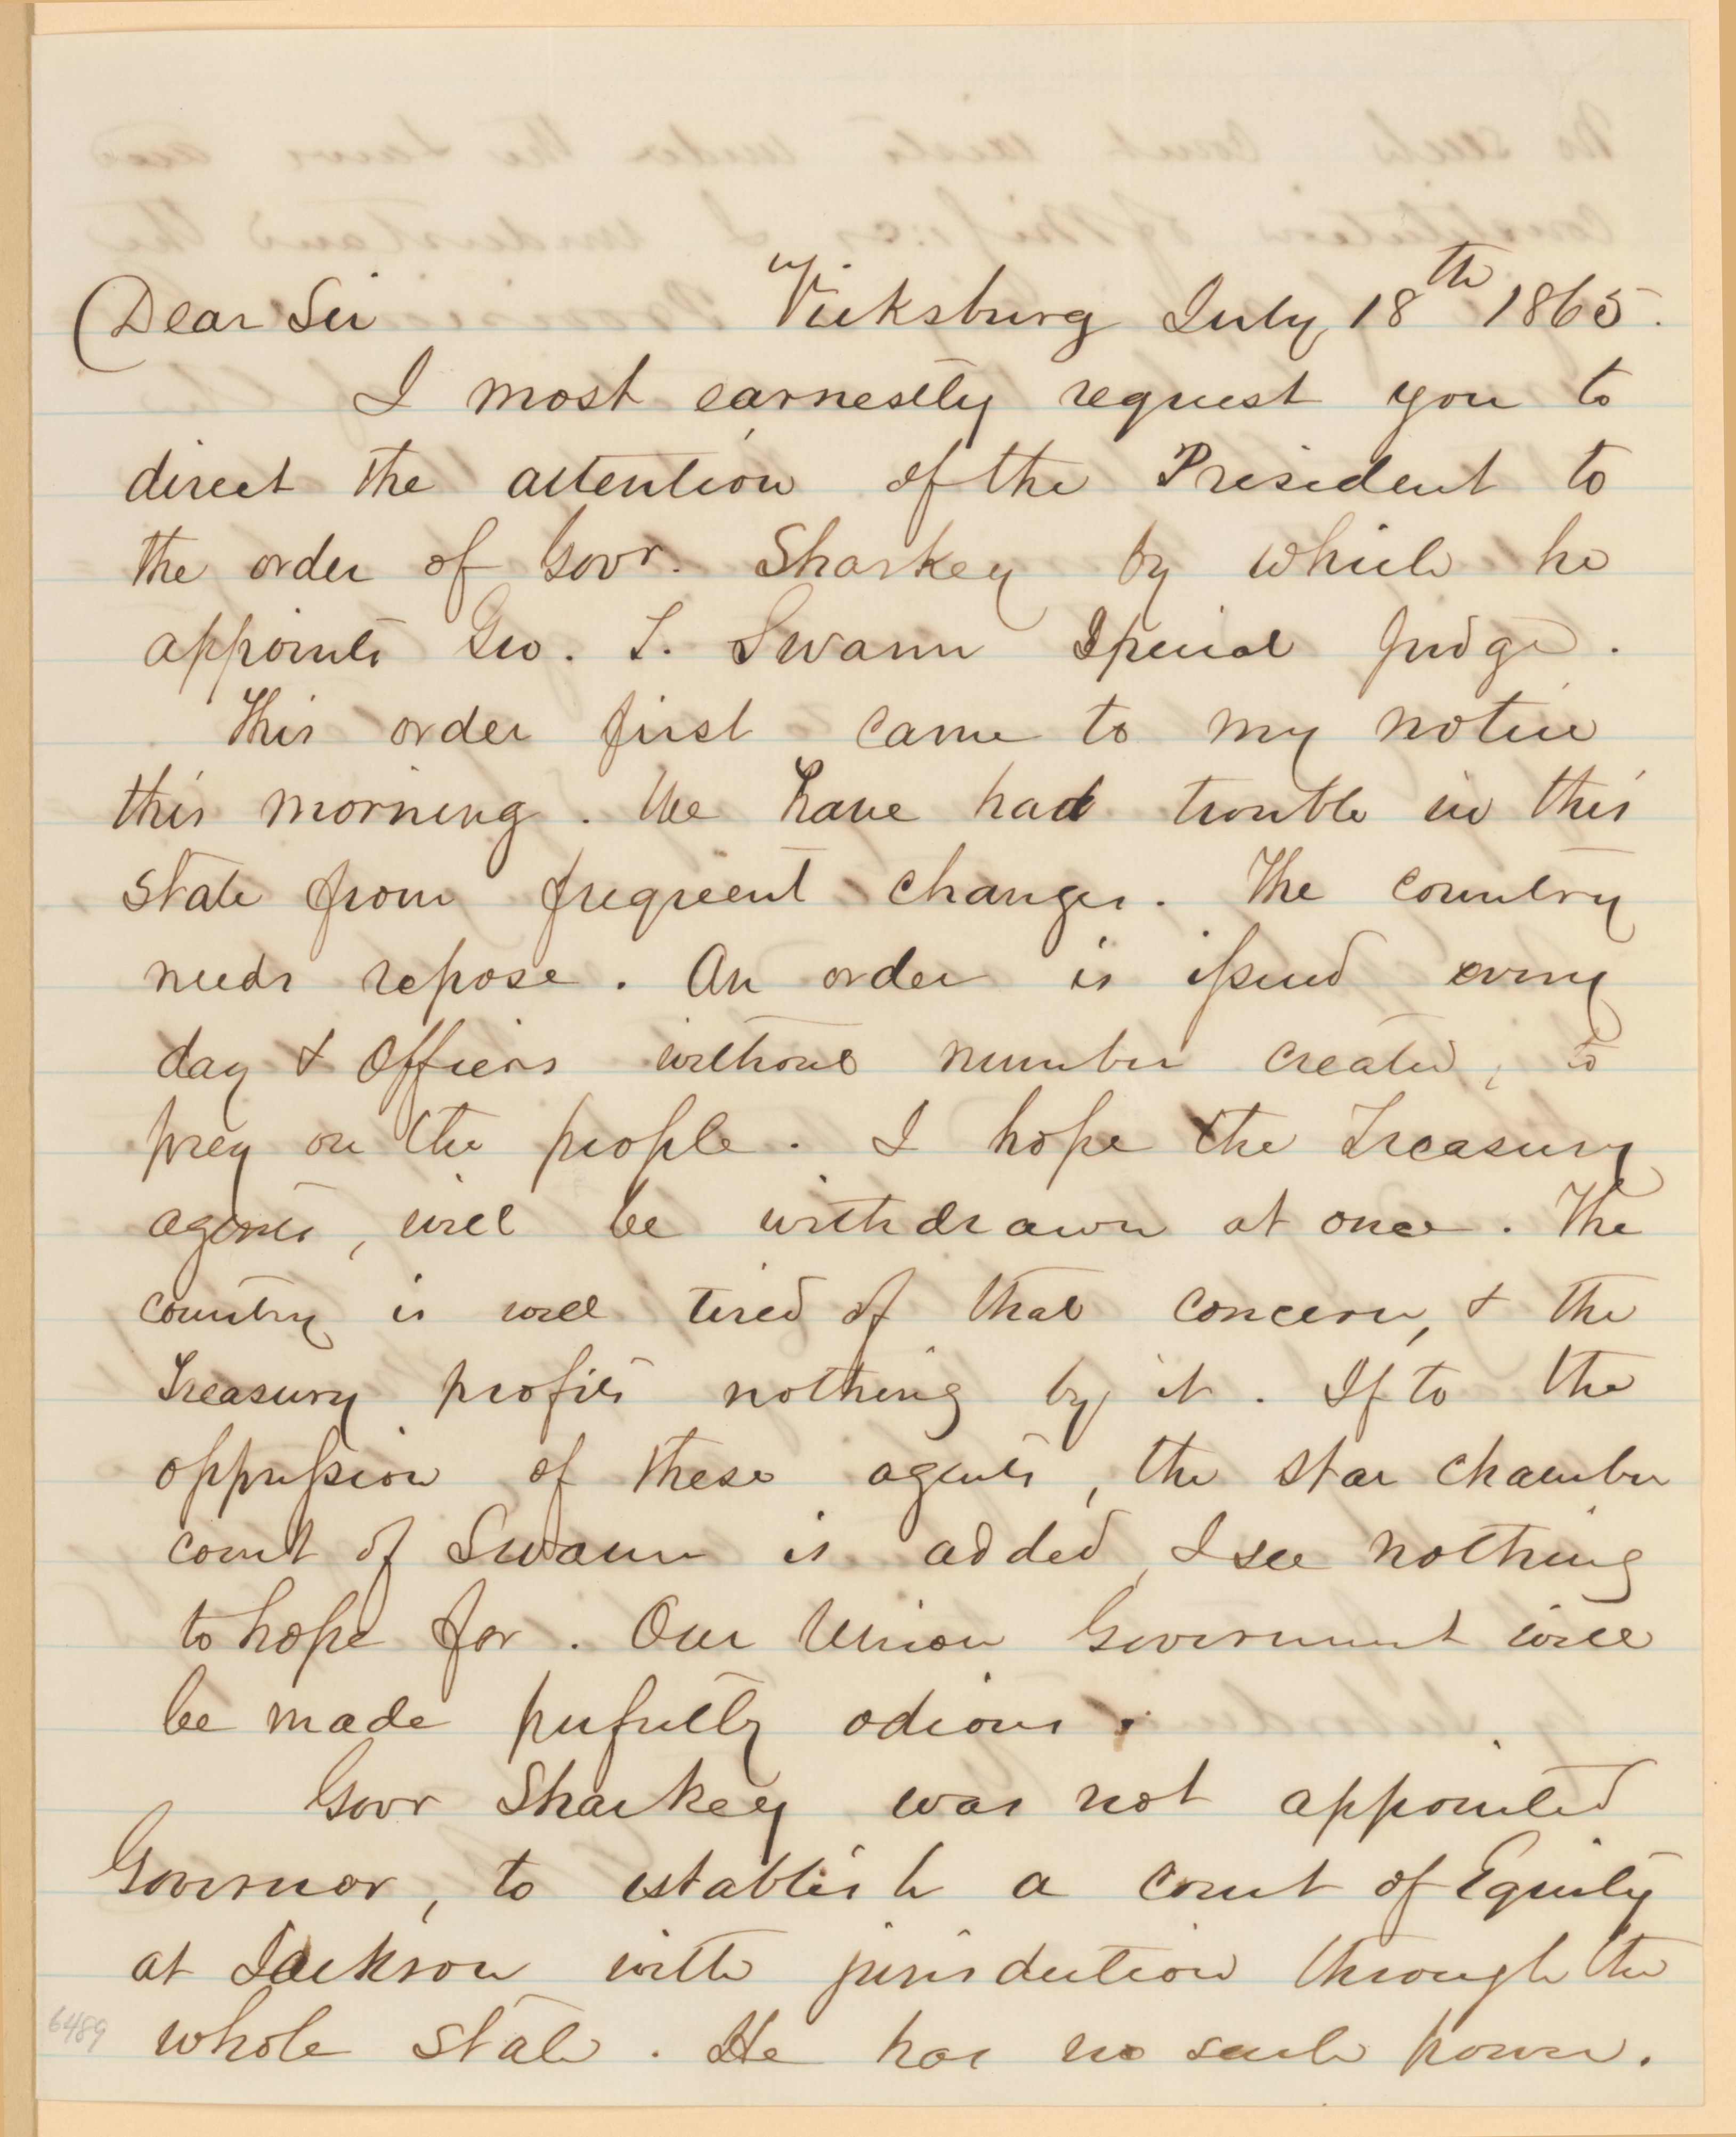 Dear Sir Vicksburg July 18th 1865.
I most earnestly request you to
direct the attention of the President to
the order of Govr. Sharkey by which he
appoints Geo. T. Swann Special Judge.
This order first came to my notice
this morning. We have had trouble in this
State from frequent changes. The country
needs repose. An order is issued every
day & Officers without number created, to
prey on the people. I hope the Treasury
agents, will be withdrawn at once. The
country is well tired of that concern, & the
Treasury profits nothing by it. If to the
oppression of these agents, the star chamber
court of Swann is added, I see nothing
to hope for. Our Union Government will
be made perfectly odious.
Govr Sharkey was not appointed
Governor, to establish a court of Equity
at Jackson with jurisdiction through the
whole state. He has no such power.
6489